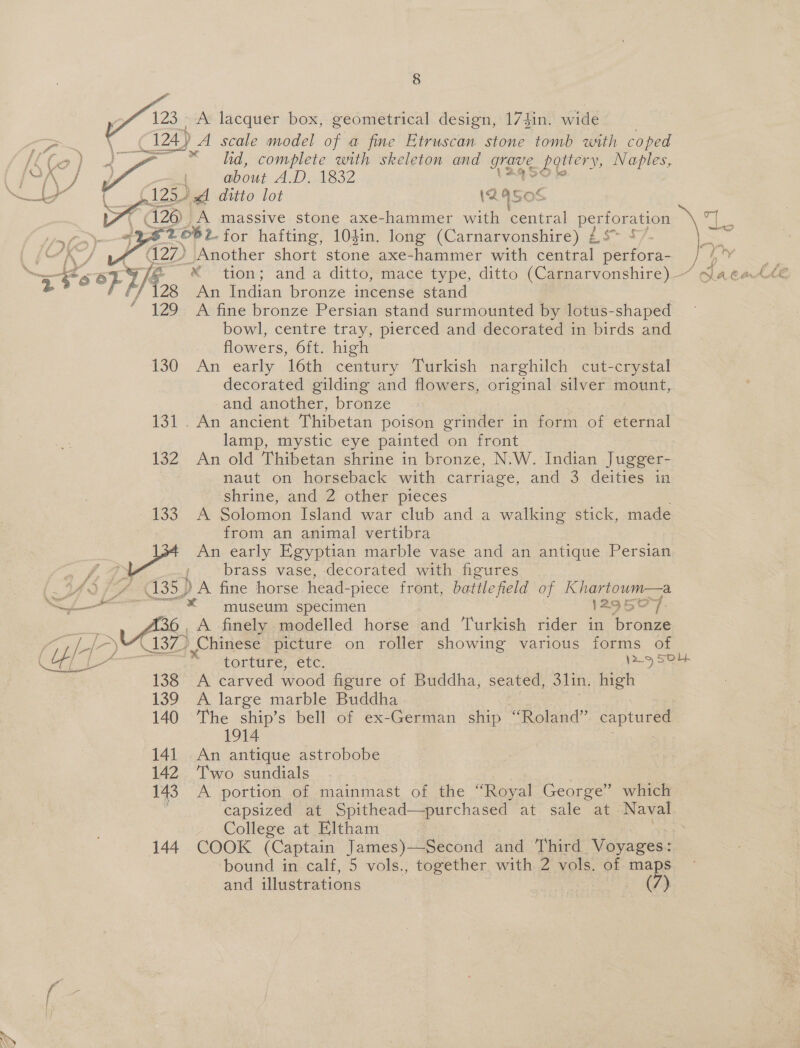 8
123 A lacquer box, geometrical design, 17½in. wide
124 A scale model of a fine Etruscan stone tomb with coped
lid, complete with skeleton and grave pottery, Naples,
about A.D. 1832
125 A ditto lot 129505
126 A massive stone axe-hammer with central perforation
for hafting, 10½in. long (Carnarvonshire) £5" 5/-
127 Another short stone axe-hammer with central perfora-
* tion; and a ditto, mace type, ditto (Carnarvonshire)
128 An Indian bronze incense stand
129 A fine bronze Persian stand surmounted by lotus-shaped
bowl, centre tray, pierced and decorated in birds and
flowers, 6ft. high
130 An early 16th century Turkish narghilch cut-crystal
decorated gilding and flowers, original silver mount,
and another, bronze
131 An ancient Thibetan poison grinder in form of eternal
lamp, mystic eye painted on front
132 An old Thibetan shrine in bronze, N.W. Indian Jugger-
naut on horseback with carriage, and 3 deities in
shrine, and 2 other pieces
133 A Solomon Island war club and a walking stick, made
from an animal vertibra
134 An early Egyptian marble vase and an antique Persian
brass vase, decorated with figures
135 A fine horse head-piece front, battlefield of Khartoum—a
* museum specimen 129507
136 A finely modelled horse and Turkish rider in bronze
137 Chinese picture on roller showing various forms of
* torture, etc. 129504
138 A carved wood figure of Buddha, seated, 31in. high
139 A large marble Buddha
140 The ship's bell of ex-German ship "Roland" captured
1914
141 An antique astrobobe
142 Two sundials
143 A portion of mainmast of the "Royal George" which
capsized at Spithead—purchased at sale at Naval
College at Eltham
144 COOK (Captain James)—Second and Third Voyages:
bound in calf, 5 vols., together with 2 vols. of maps
and illustrations (7)